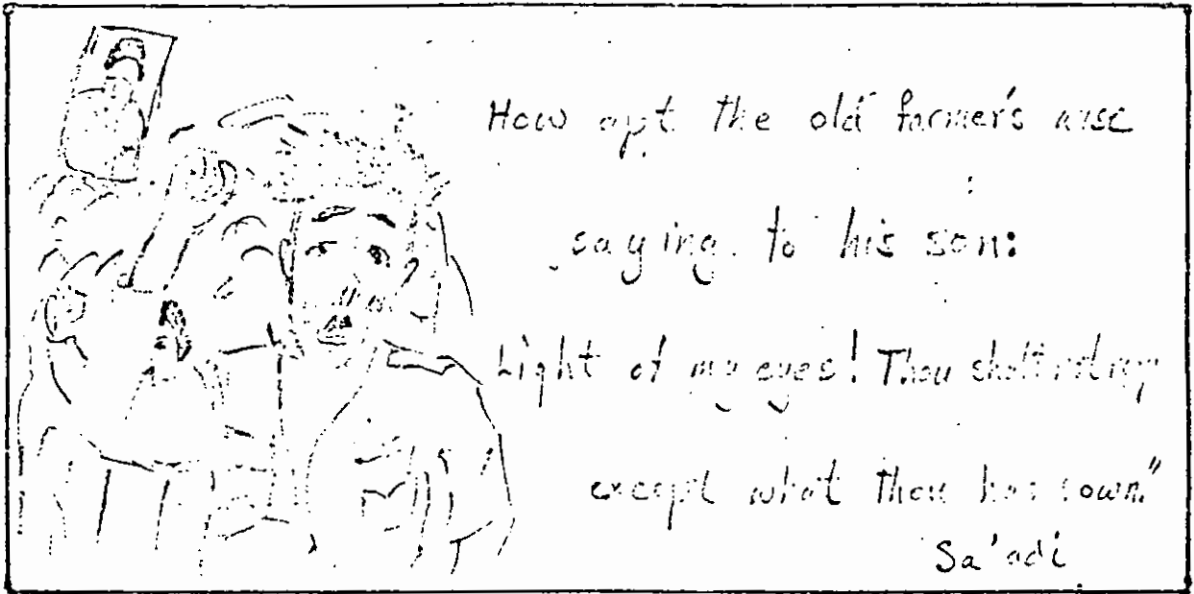 How apt the old farmer's wise
saying to his son:
Light of my eyes! Thou shalt not reap
except what thou has sown."
Sa'adi